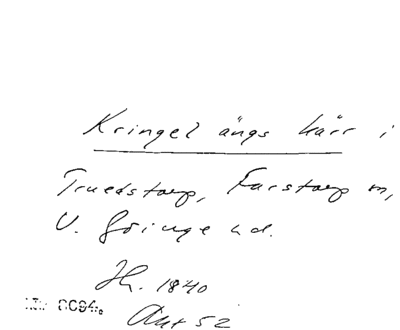 Kringelängs kärr i
Truedstorp, Farstorp sn,
V. Göinge hd.
1840
Ant 52